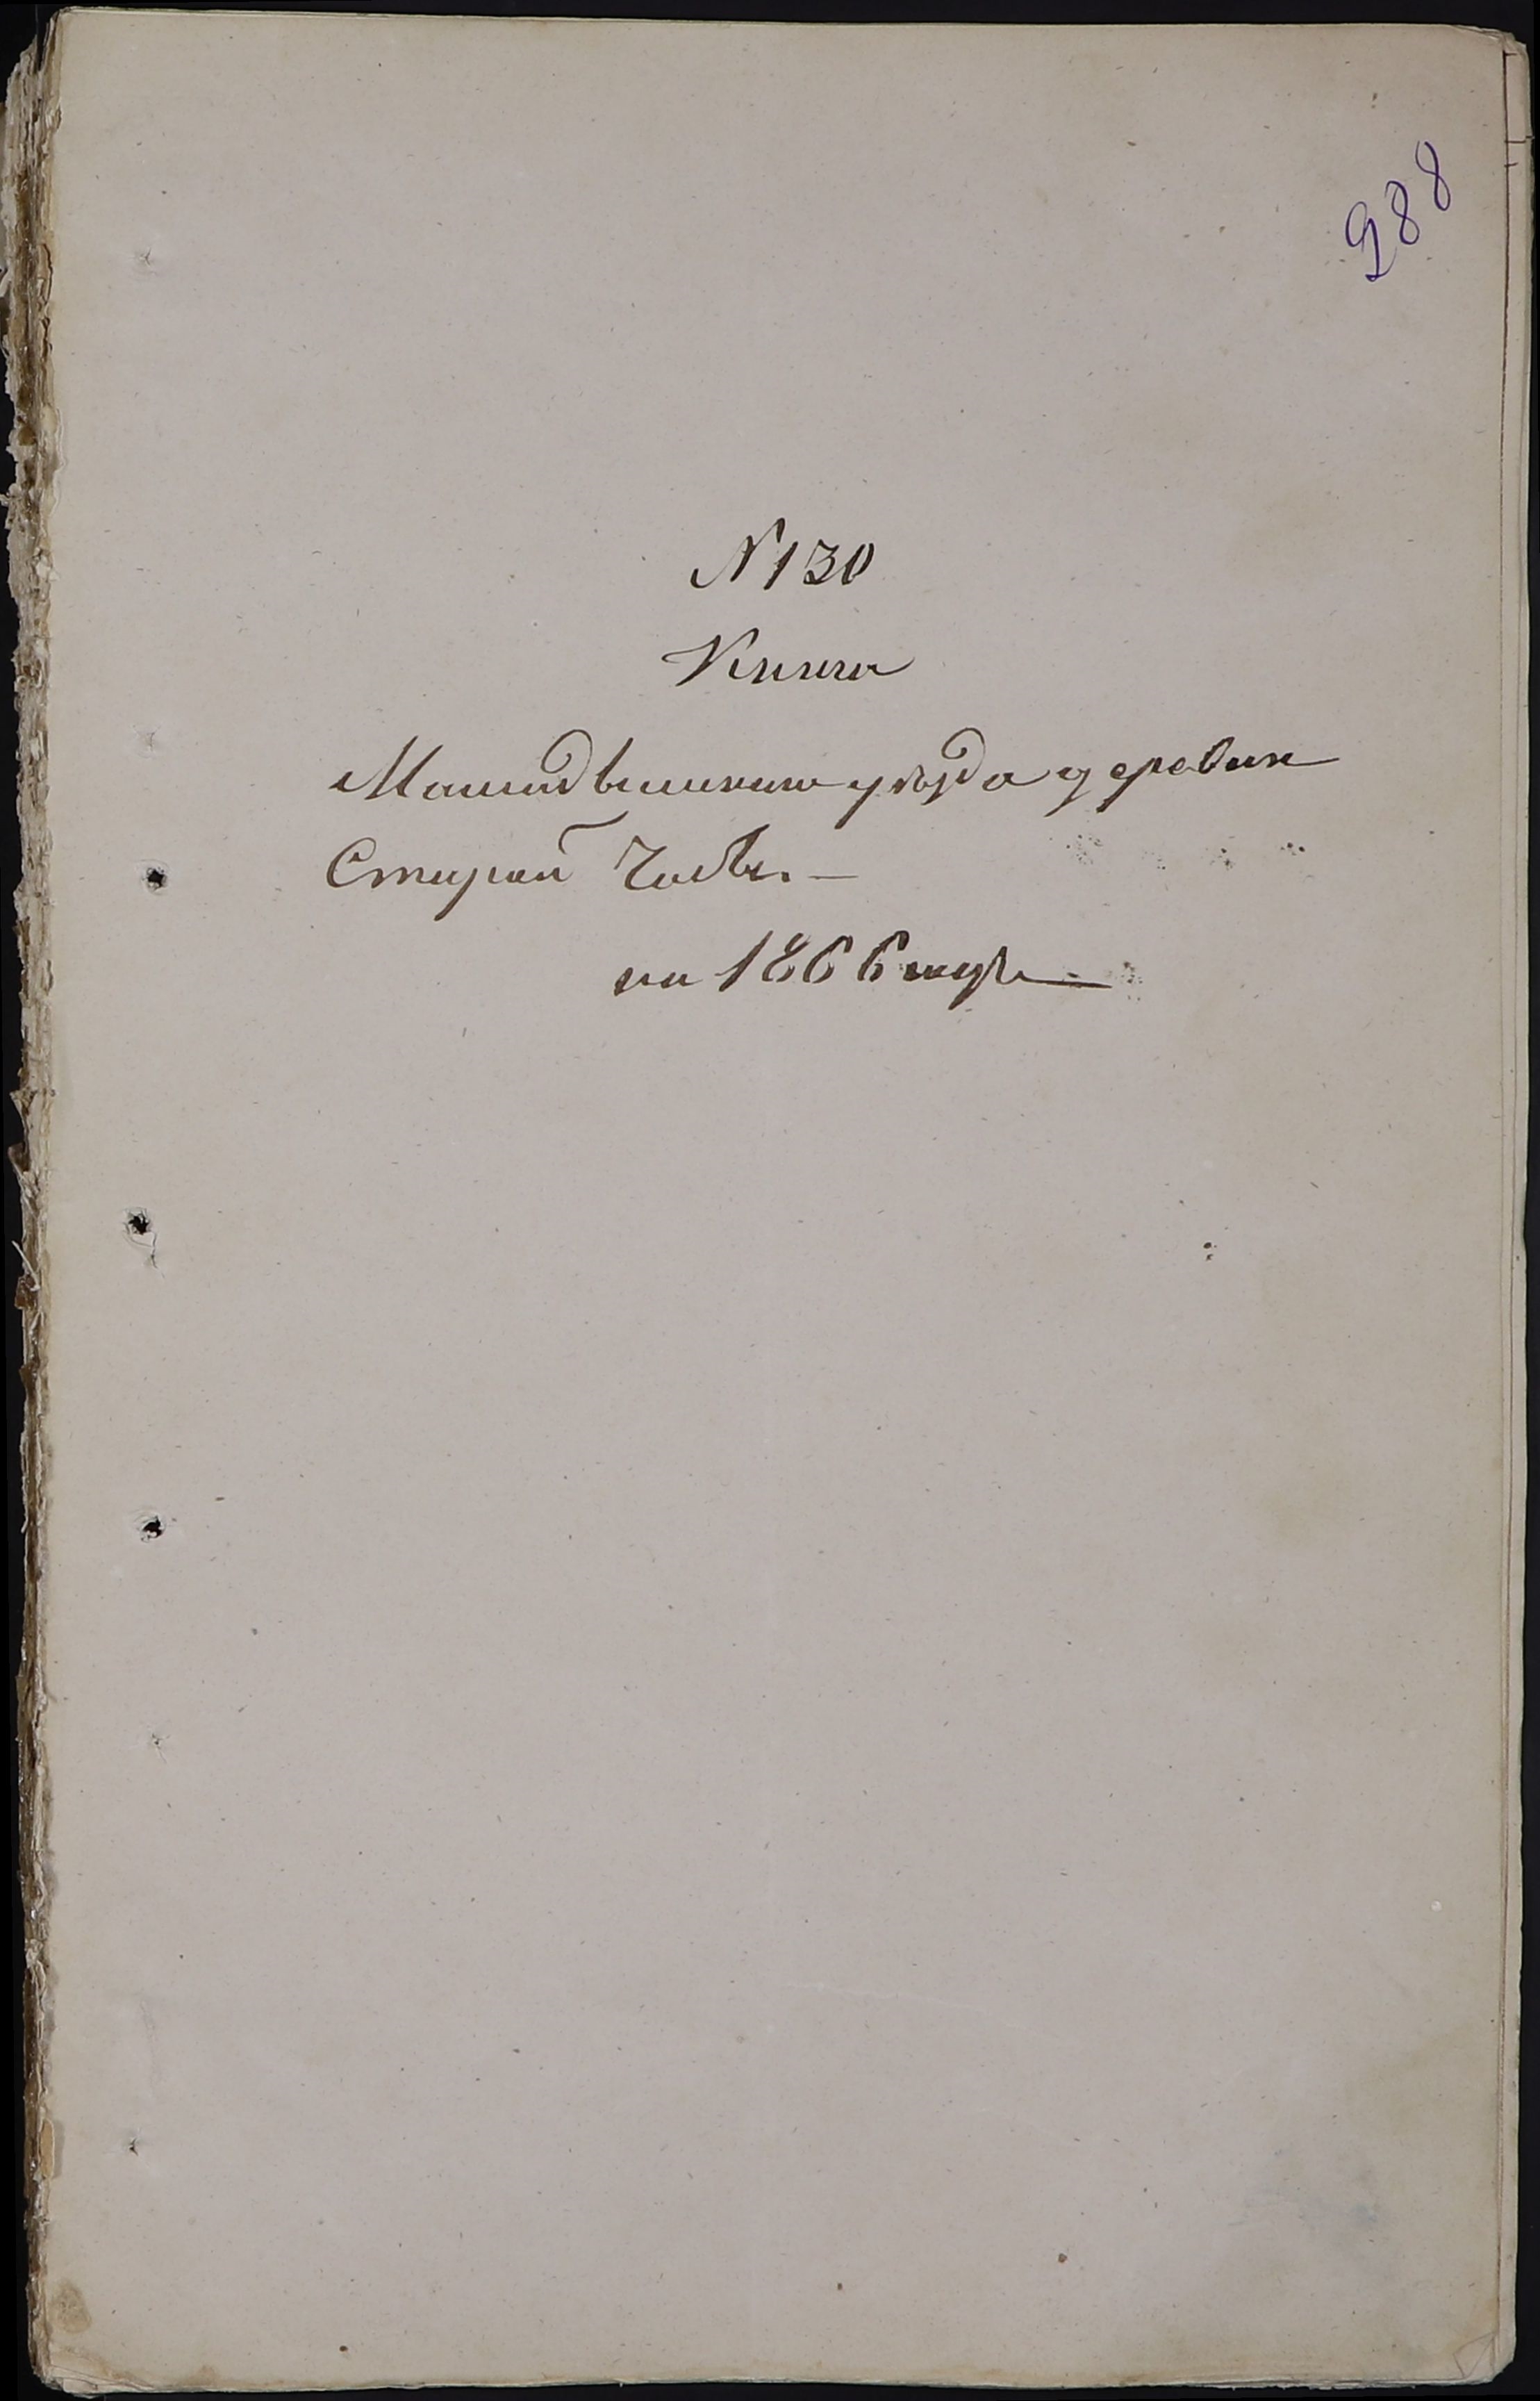 288
N 130
Книга
Мамадышскаго уѣзда деревни
Старой
на 1866 годъ